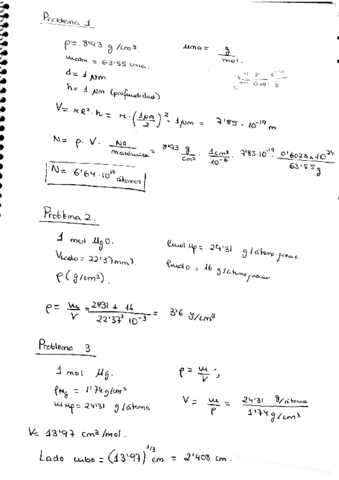 Problema 1
ρ = 8'93 g/cm³
uma = g/mol.
matm = 63'55 uma.
d = 1 μm
h = 1 μm (profundidad)
V = π R² · h = π · (1μm/2)² · 1μm = 7'85 · 10⁻¹⁹ m
N = ρ · V · NA/matómica = 8'93 g/cm³ · 1cm³/10⁻⁶ · 7'85·10⁻¹⁹ · 0'6023 x 10²⁴/63'55 g
N = 6'64 · 10¹⁰ átomos
Problema 2.
1 mol MgO.
Vlado = 22'37mm³.
ρ(g/cm³).
24'31 g/átomo
16 g/átomo
ρ = m/V = 24'31 + 16/22'37³ 10⁻³ = 3'6 g/cm³
Problema 3
1 mol Mg.
ρMg = 1'74 g/cm³
m Mg = 24'31 g/átomo
ρ = m/V ;
V = m/ρ = 24'31 g/átomo/1'74 g/cm³
V = 13'97 cm³/mol.
Lado cubo = (13'97)^1/3 cm = 2'408 cm.